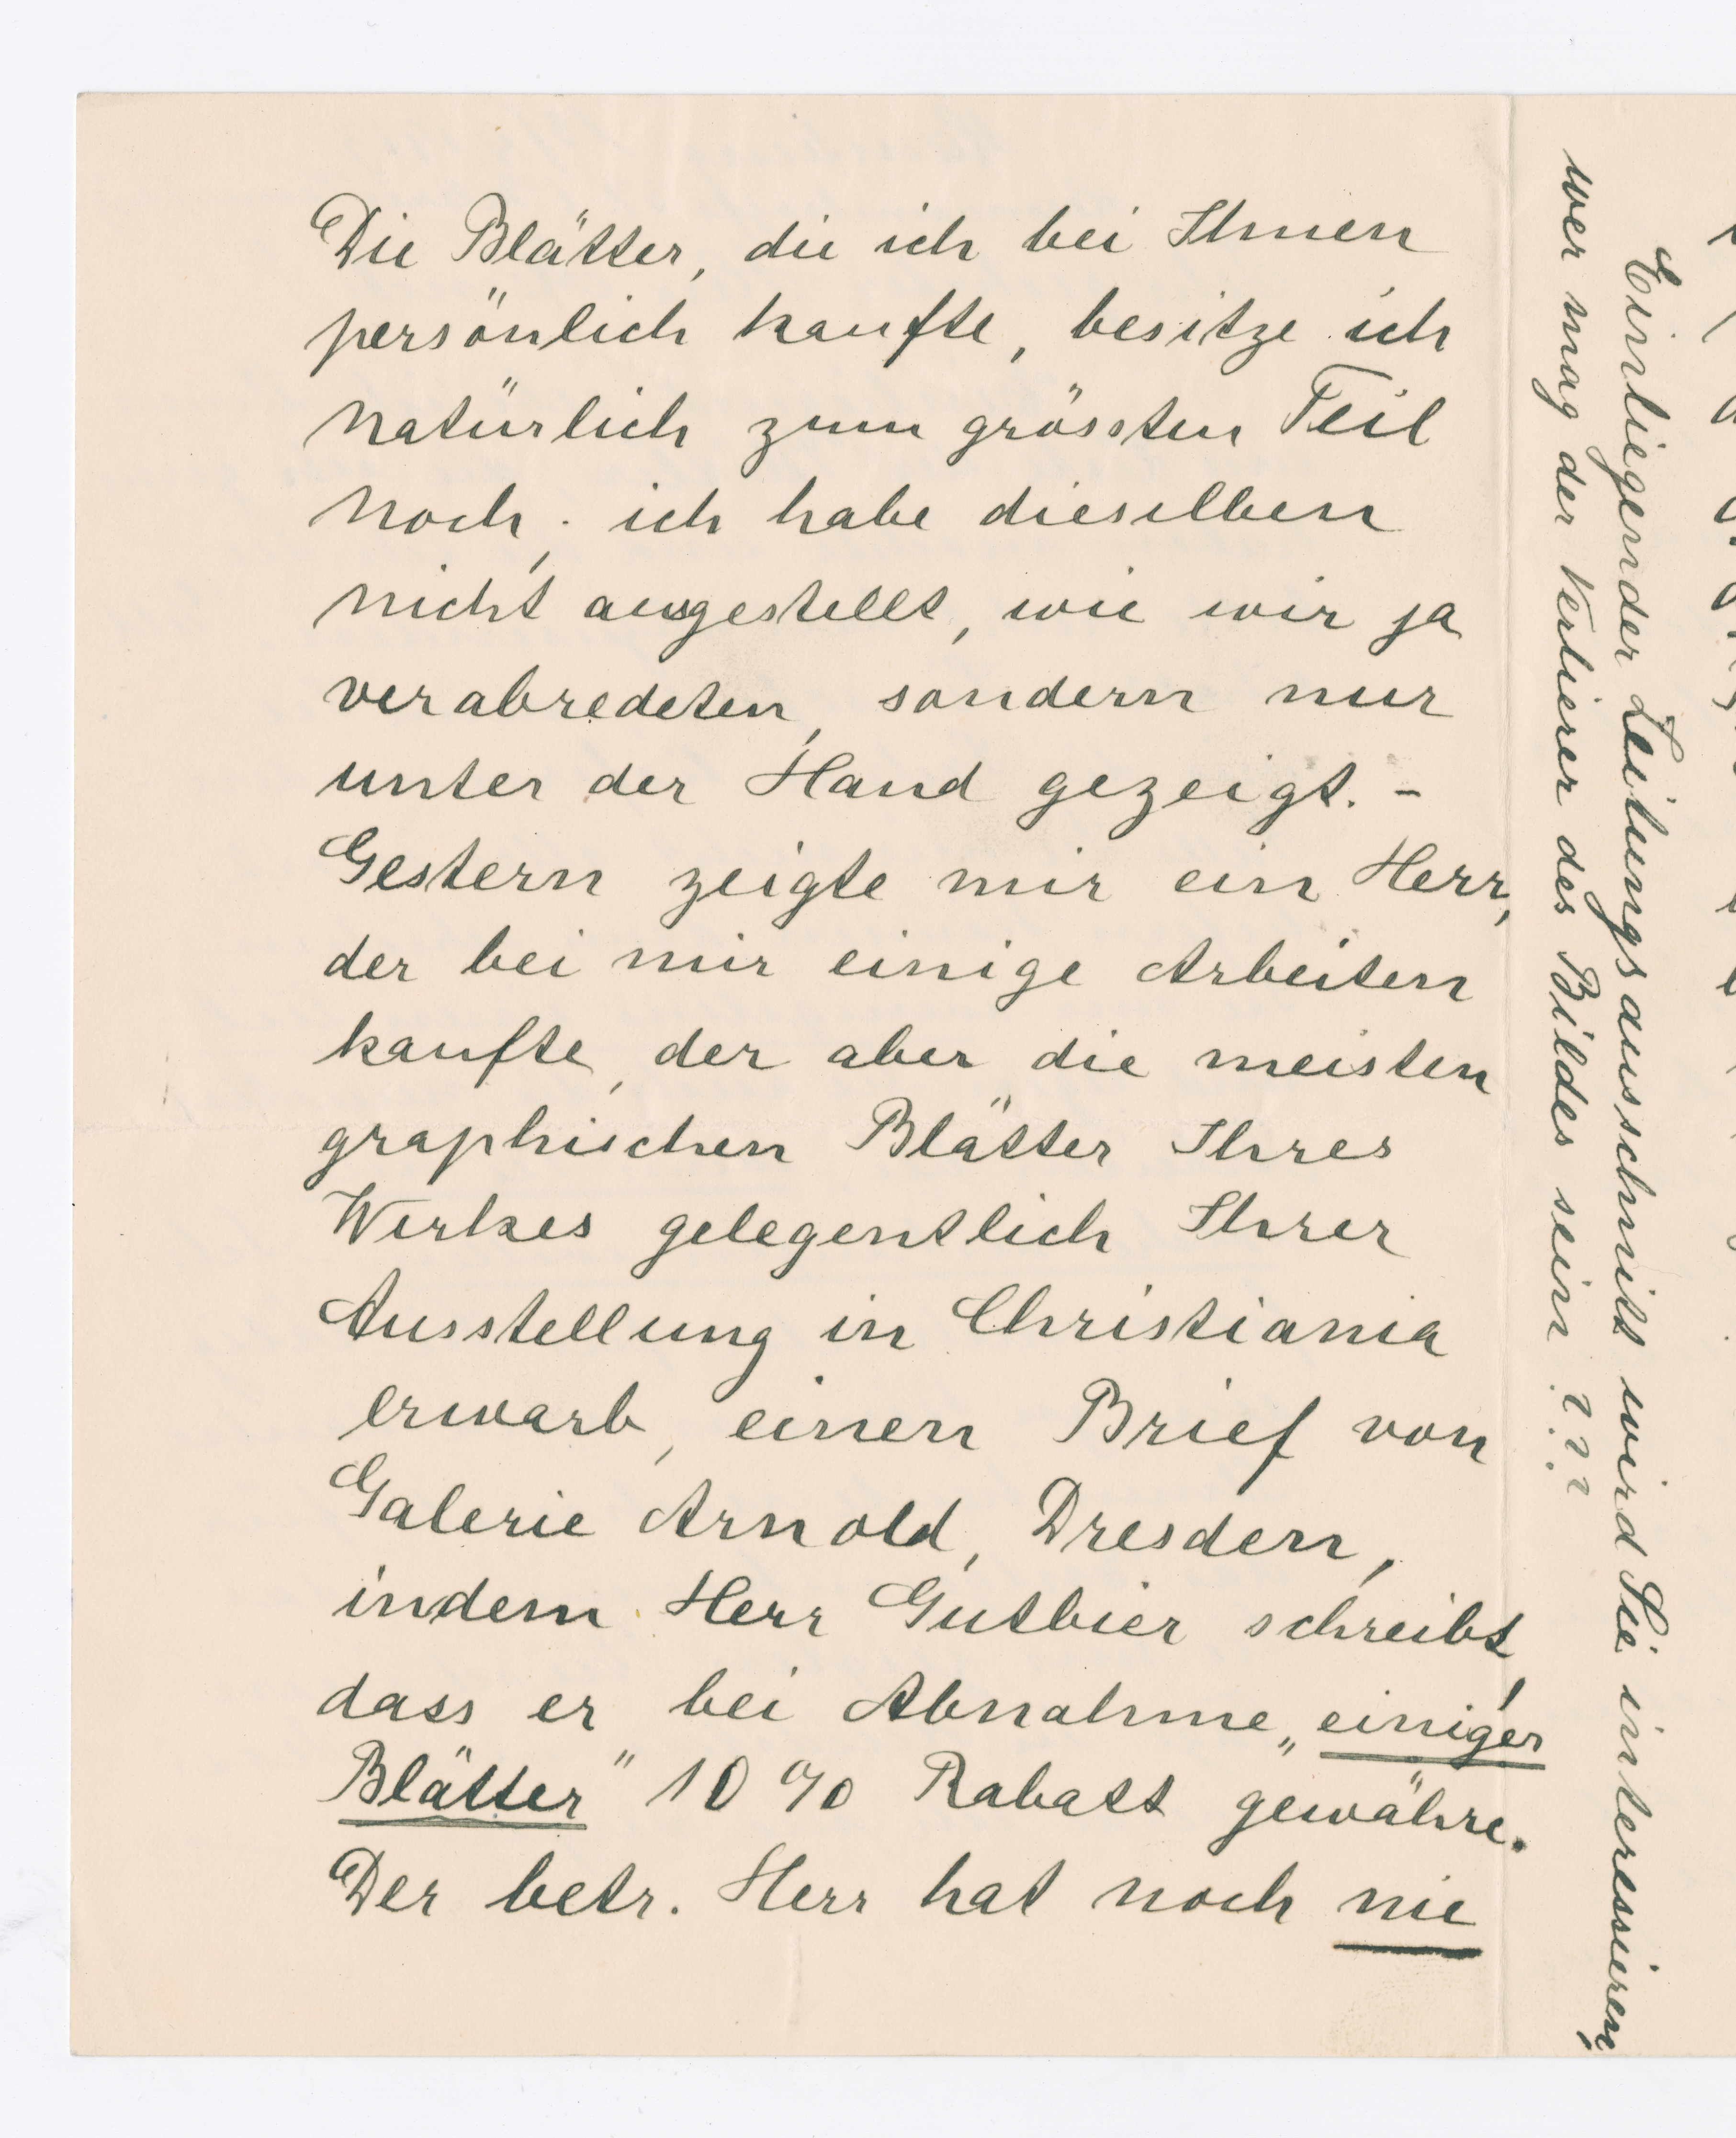 Die Blätter, die ich bei Ihnen
persönlich kaufte, besitze ich
natürlich zum grössten Teil
noch, ich habe dieselben
nicht ausgestellt, wie wir ja
verabredeten, sondern nur
unter der Hand gezeigt. -
Gestern zeigte mir ein Herr,
der bei mir einige Arbeiten
kaufte, der aber die meisten
graphischen Blätter Ihres
Werkes gelegentlich Ihrer
Ausstellung in Christiania
erwarb, einen Brief von
Galerie Arnold, Dresden,
indem Herr Gutbier schreibt,
dass er bei Abnahme „einiger
Blätter" 10 % Rabatt gewähre.
Der betr. Herr hat noch nie
Einliegender Zeitungsausschnitt wird Sie interessieren,
wer mag der Verlierer des Bildes sein ???